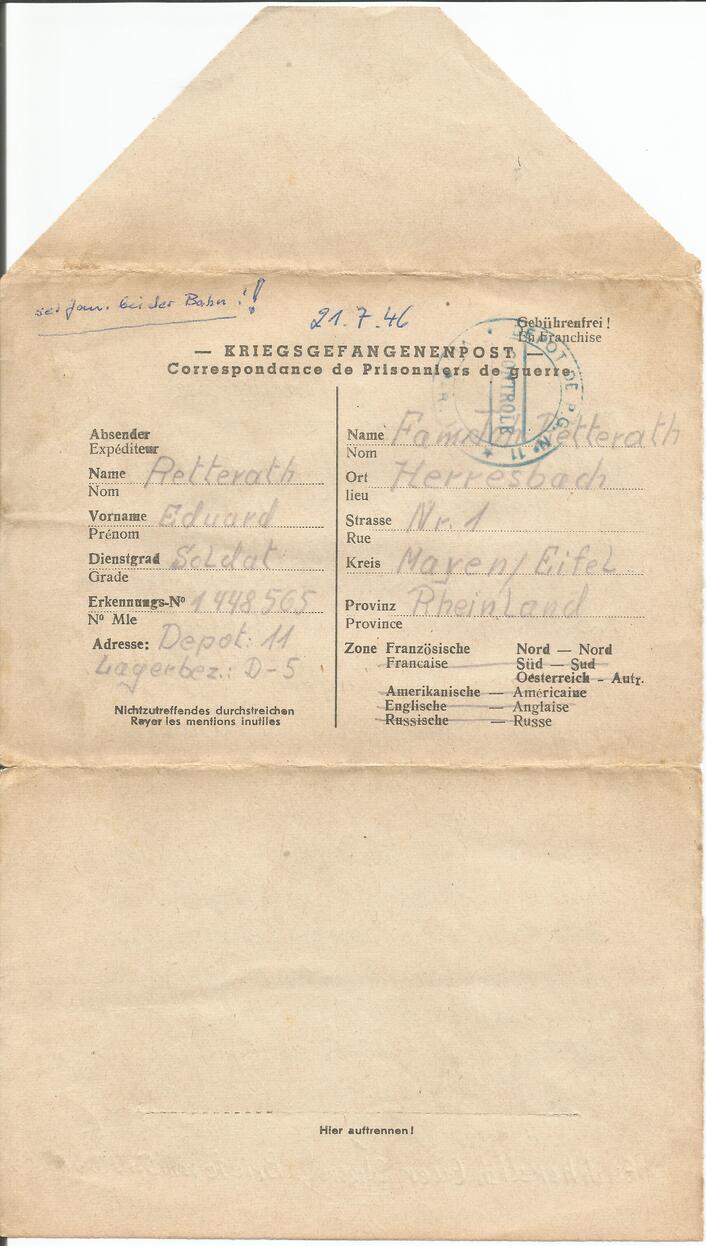 sei Jan. bei der Bahn!!
21.7.46
Gebührenfrei!
En Franchise
— KRIEGSGEFANGENENPOST —
Correspondance de Prisonniers de guerre
DEPOT DE P.G. N° 11
CONTROLE
Absender
Expéditeur
Name Retterath
Nom
Vorname Eduard
Prénom
Dienstgrad Soldat
Grade
Erkennungs-N° 1448565
N° Mle
Adresse: Depot: 11
Lagerbez.: D-5
Nichtzutreffendes durchstreichen
Rayer les mentions inutiles
Name Familie Retterath
Nom
Ort Herresbach
lieu
Strasse Nr. 1
Rue
Kreis Mayen/Eifel
Provinz Rheinland
Province
Zone Französische Nord — Nord
Francaise Süd — Sud
Oesterreich - Autr.
Amerikanische — Américaine
Englische — Anglaise
Russische — Russe
Hier auftrennen!